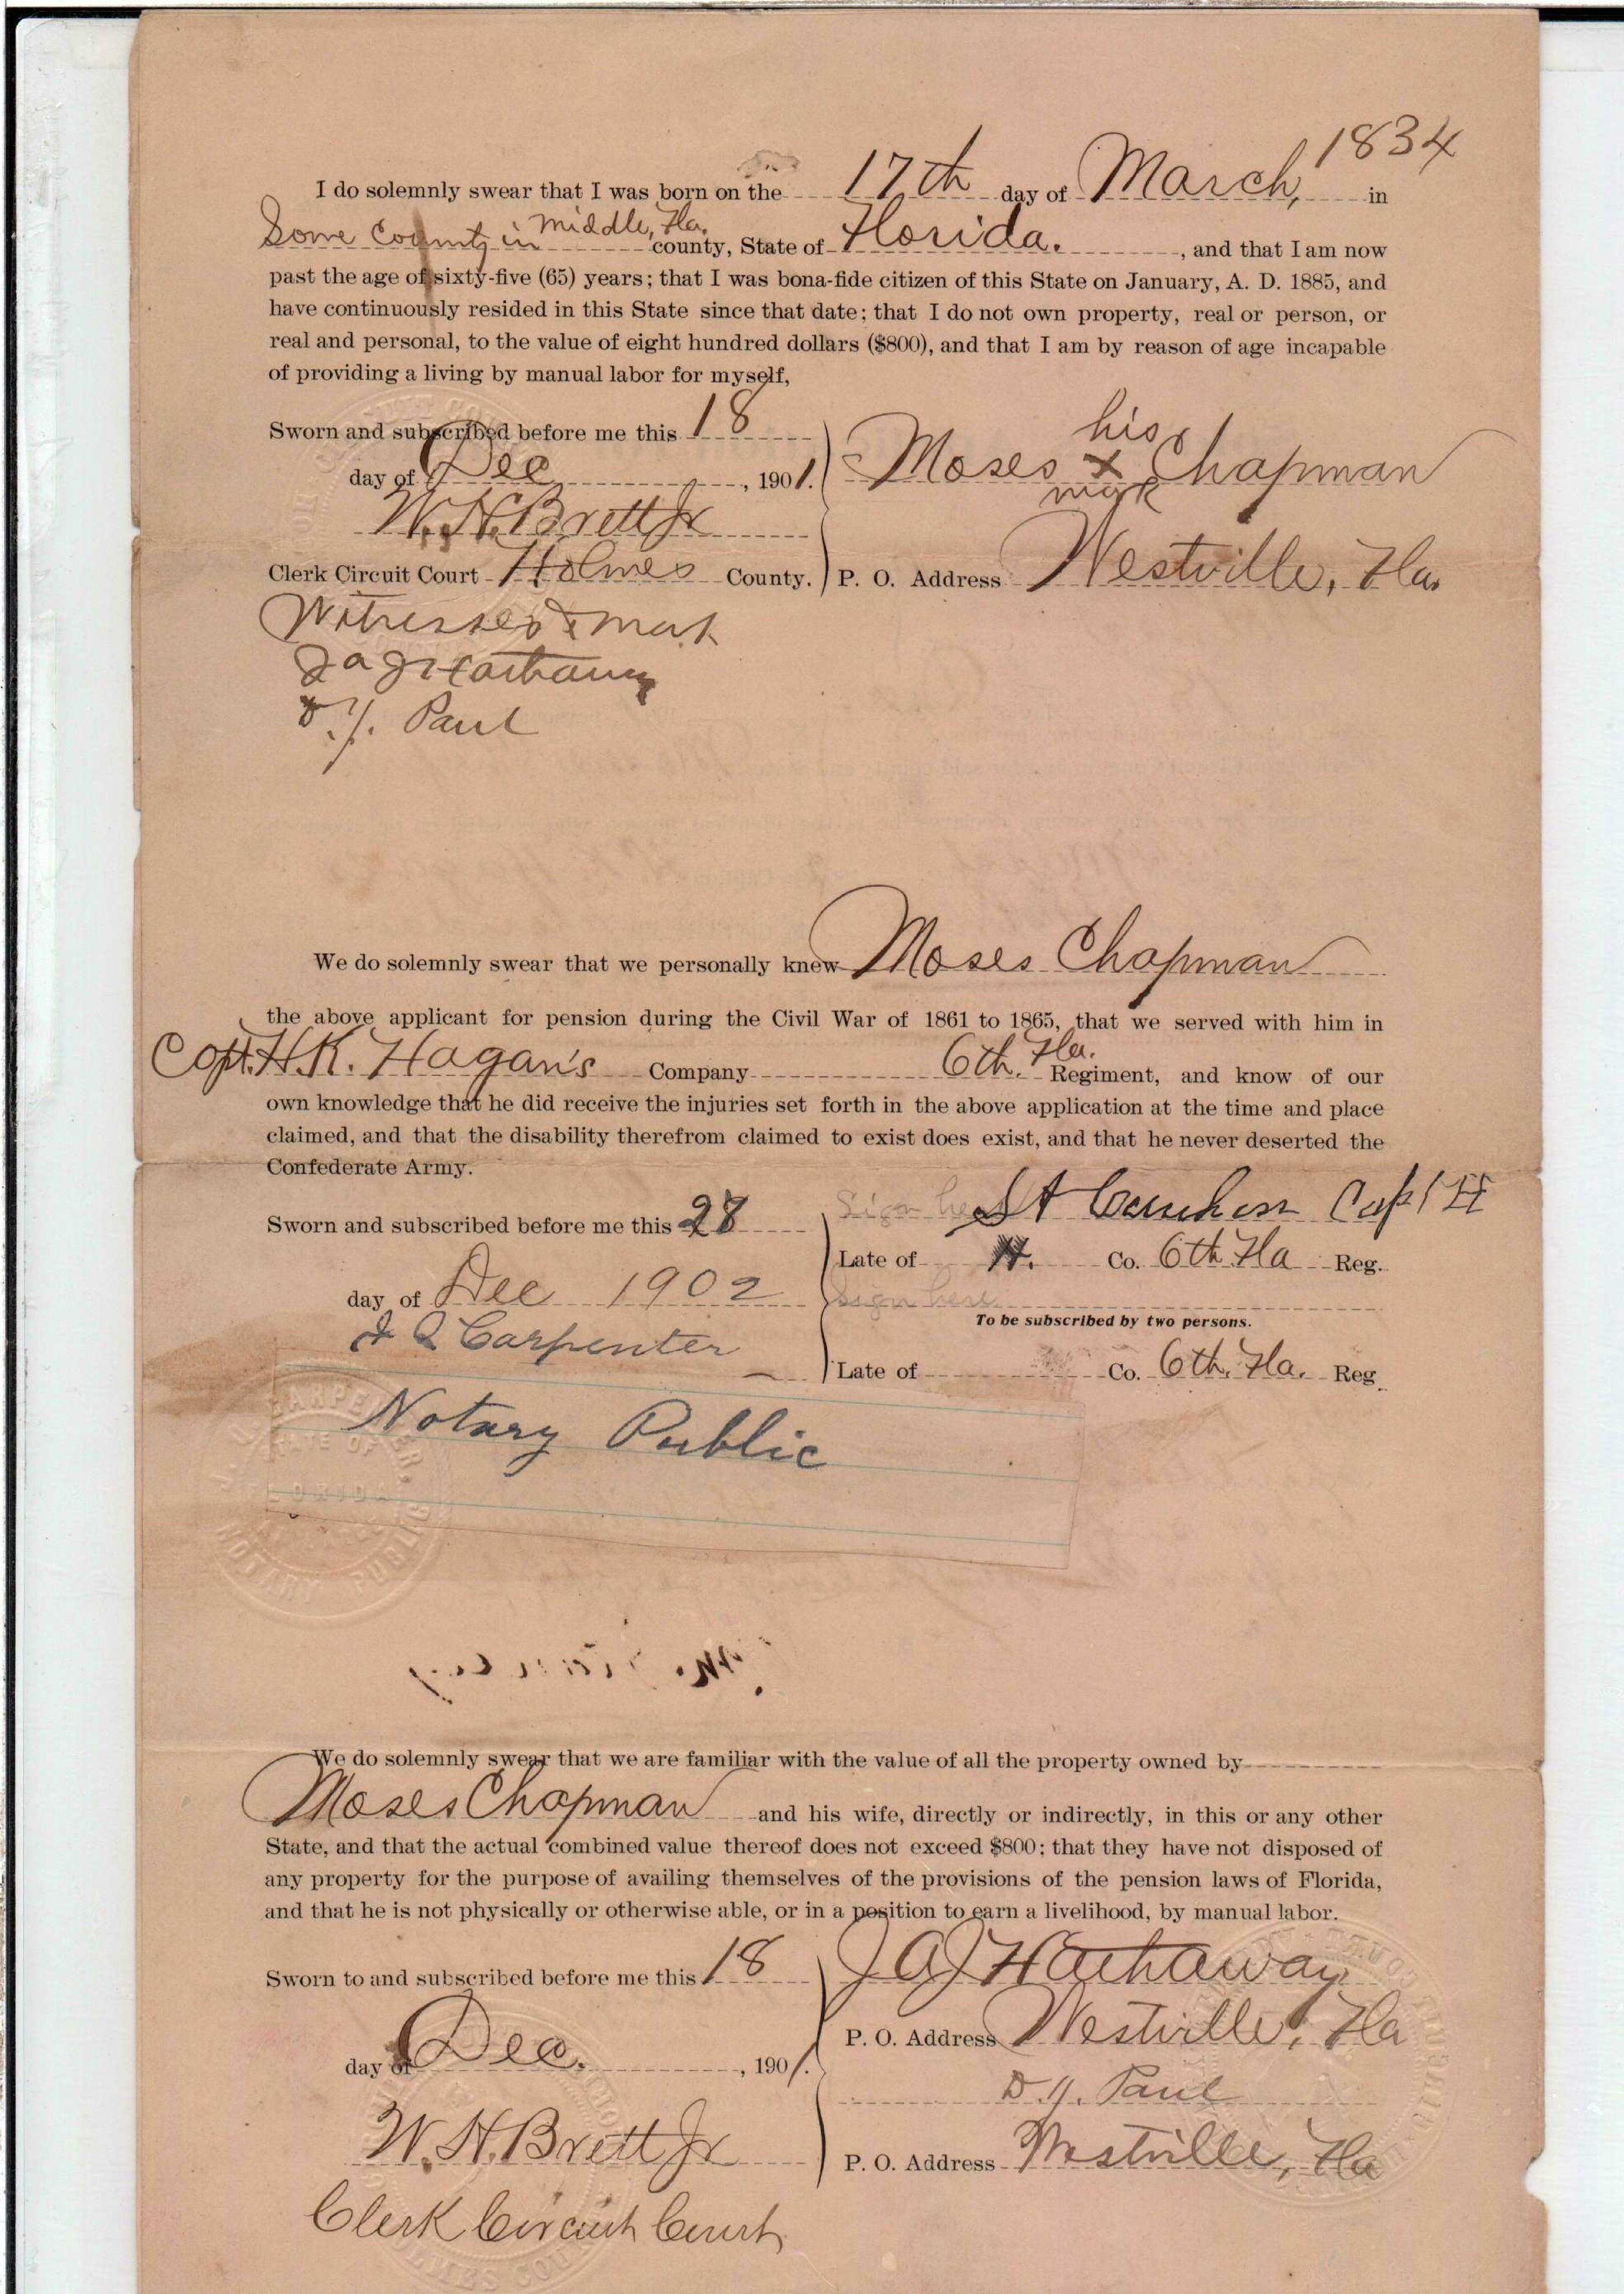 1834
I do solemnly swear that I was born on the 17th day of March, in
Some County in Middle, Fla. county, State of Florida. , and that I am now
past the age of sixty-five (65) years; that I was bona-fide citizen of this State on January, A. D. 1885, and
have continuously resided in this State since that date; that I do not own property, real or person, or
real and personal, to the value of eight hundred dollars ($800), and that I am by reason of age incapable
of providing a living by manual labor for myself,
Sworn and subscribed before me this 18
his
day of Dec , 1901. Moses x Chapman
mark
W. H. Brett Jr
Clerk Circuit Court Holmes County. P. O. Address Westville, Fla.
Witnesses mark
J A J Hathaway
D. Y. Paul
We do solemnly swear that we personally knew Moses Chapman
the above applicant for pension during the Civil War of 1861 to 1865, that we served with him in
Capt. H. K. Hagan's Company 6th. Fla. Regiment, and know of our
own knowledge that he did receive the injuries set forth in the above application at the time and place
claimed, and that the disability therefrom claimed to exist does exist, and that he never deserted the
Confederate Army.
Sworn and subscribed before me this 28 Sign here Capt H
Late of H. Co. 6th Fla Reg.
day of Dec 1902 Sign here
To be subscribed by two persons.
J Q Carpenter
Late of Co. 6th. Fla. Reg.
Notary Public
CARPENTER
STATE OF
FLORIDA
NOTARY PUBLIC
We do solemnly swear that we are familiar with the value of all the property owned by
Moses Chapman and his wife, directly or indirectly, in this or any other
State, and that the actual combined value thereof does not exceed $800; that they have not disposed of
any property for the purpose of availing themselves of the provisions of the pension laws of Florida,
and that he is not physically or otherwise able, or in a position to earn a livelihood, by manual labor.
Sworn to and subscribed before me this 18 J A J Hathaway
P. O. Address Westville, Fla
day of Dec. , 1901.
D. Y. Paul
W. H. Brett Jr P. O. Address Westville, Fla
Clerk Circuit Court